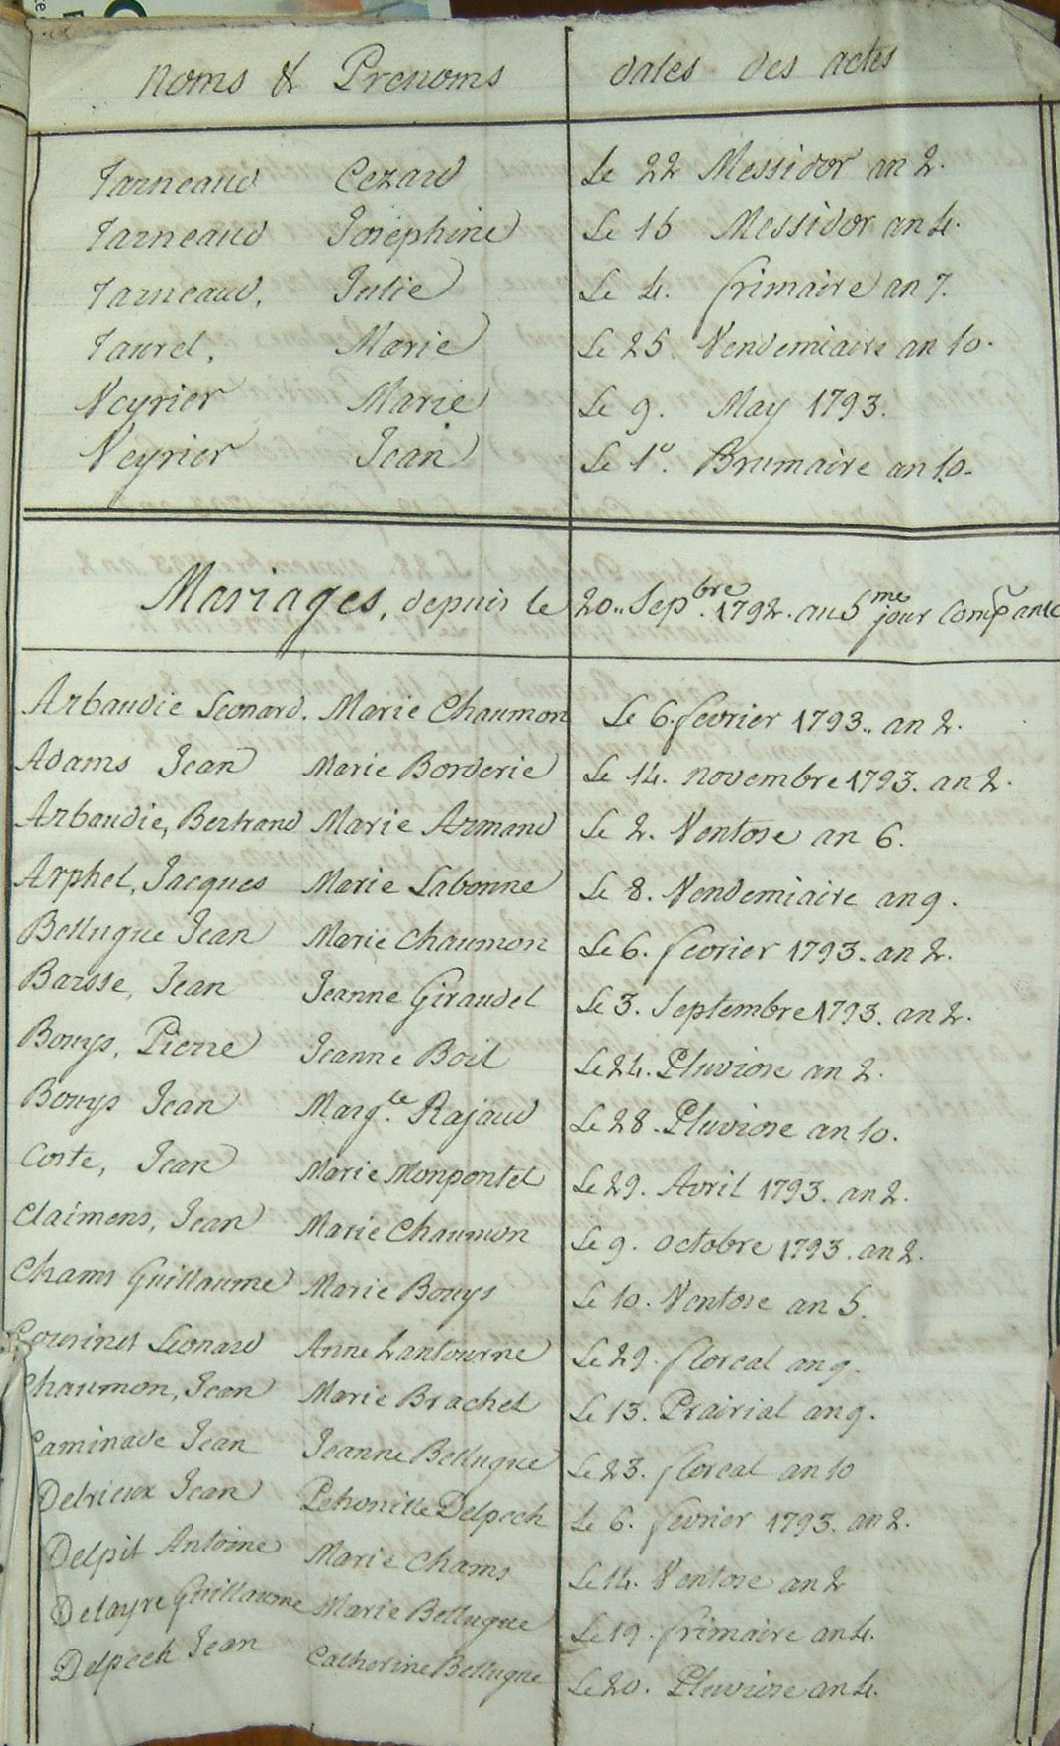 Noms & Prenoms dates des actes
Tarneaud Cezard Le 22 Messidor an 2.
Tarneaud Josephine Le 16 Messidor an 4.
Tarneaud, Julie Le 4. frimaire an 7.
Taurel, Marie Le 25. Vendemiaire an 10.
Veyrier Marie Le 9. May 1793.
Veyrier Jean Le 1º. Brumaire an 10.
Mariages, depuis le 20.. Sepbre. 1792. au 5me jour Comp
Arbaudie Leonard. Marie Chaumon Le 6. fevrier 1793.. an 2.
Adams Jean Marie Borderie Le 14. novembre 1793. an 2.
Arbaudie, Bertrand Marie Armand Le 2. Ventose an 6.
Arphel, Jacques Marie Labonne Le 8. Vendemiaire an 9.
Bellugue Jean Marie Chaumon Le 6. fevrier 1793. an 2.
Barsse, Jean Jeanne Giraudel Le 3. Septembre 1793. an 2.
Bouys, Pierre Jeanne Boil Le 24. Pluviose an 2.
Bouys Jean Margte. Rajaud Le 28. Pluviose an 10.
Coste, Jean Marie Monpontel Le 29. Avril 1793. an 2.
Claimens, Jean Marie Chaumon Le 9. octobre 1793. an 2.
Chams Guillaume Marie Bouys Le 10. Ventose an 5.
Leonard Anne Lantourne Le 29. floreal an 9.
Chaumon, Jean Marie Brachet Le 13. Prairial an 9.
Caminade Jean Jeanne Bellugue Le 23. floreal an 10
Delrieux Jean Petronille Delpech Le 6. fevrier 1793. an 2.
Delpit Antoine Marie Chams Le 14. Ventose an 2
Delayre Guillaume Marie Bellugue Le 19. frimaire an 4.
Delpech Jean Catherine Bellugue Le 20. Pluviose an 4.